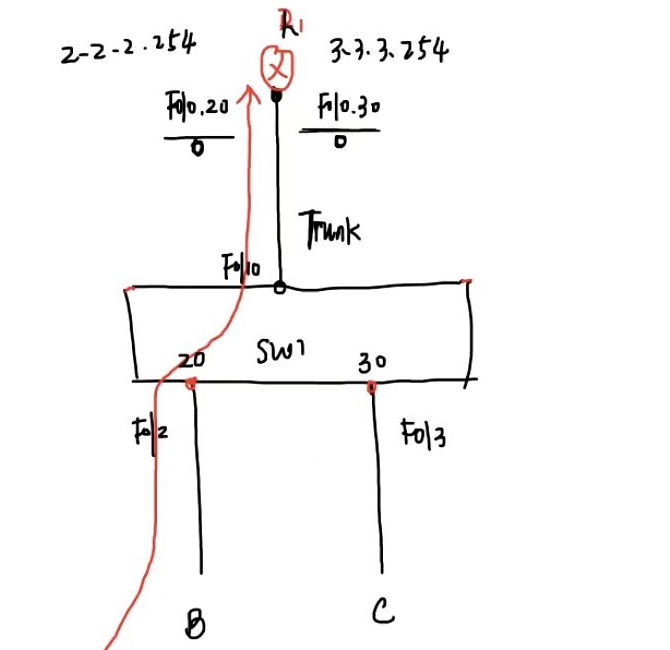 R1
2-2-2.254
3.3.3.254
F0/0.20
F0/0.30
0
0
Trunk
F0/10
20
SW1
30
F0/2
F0/3
B
C